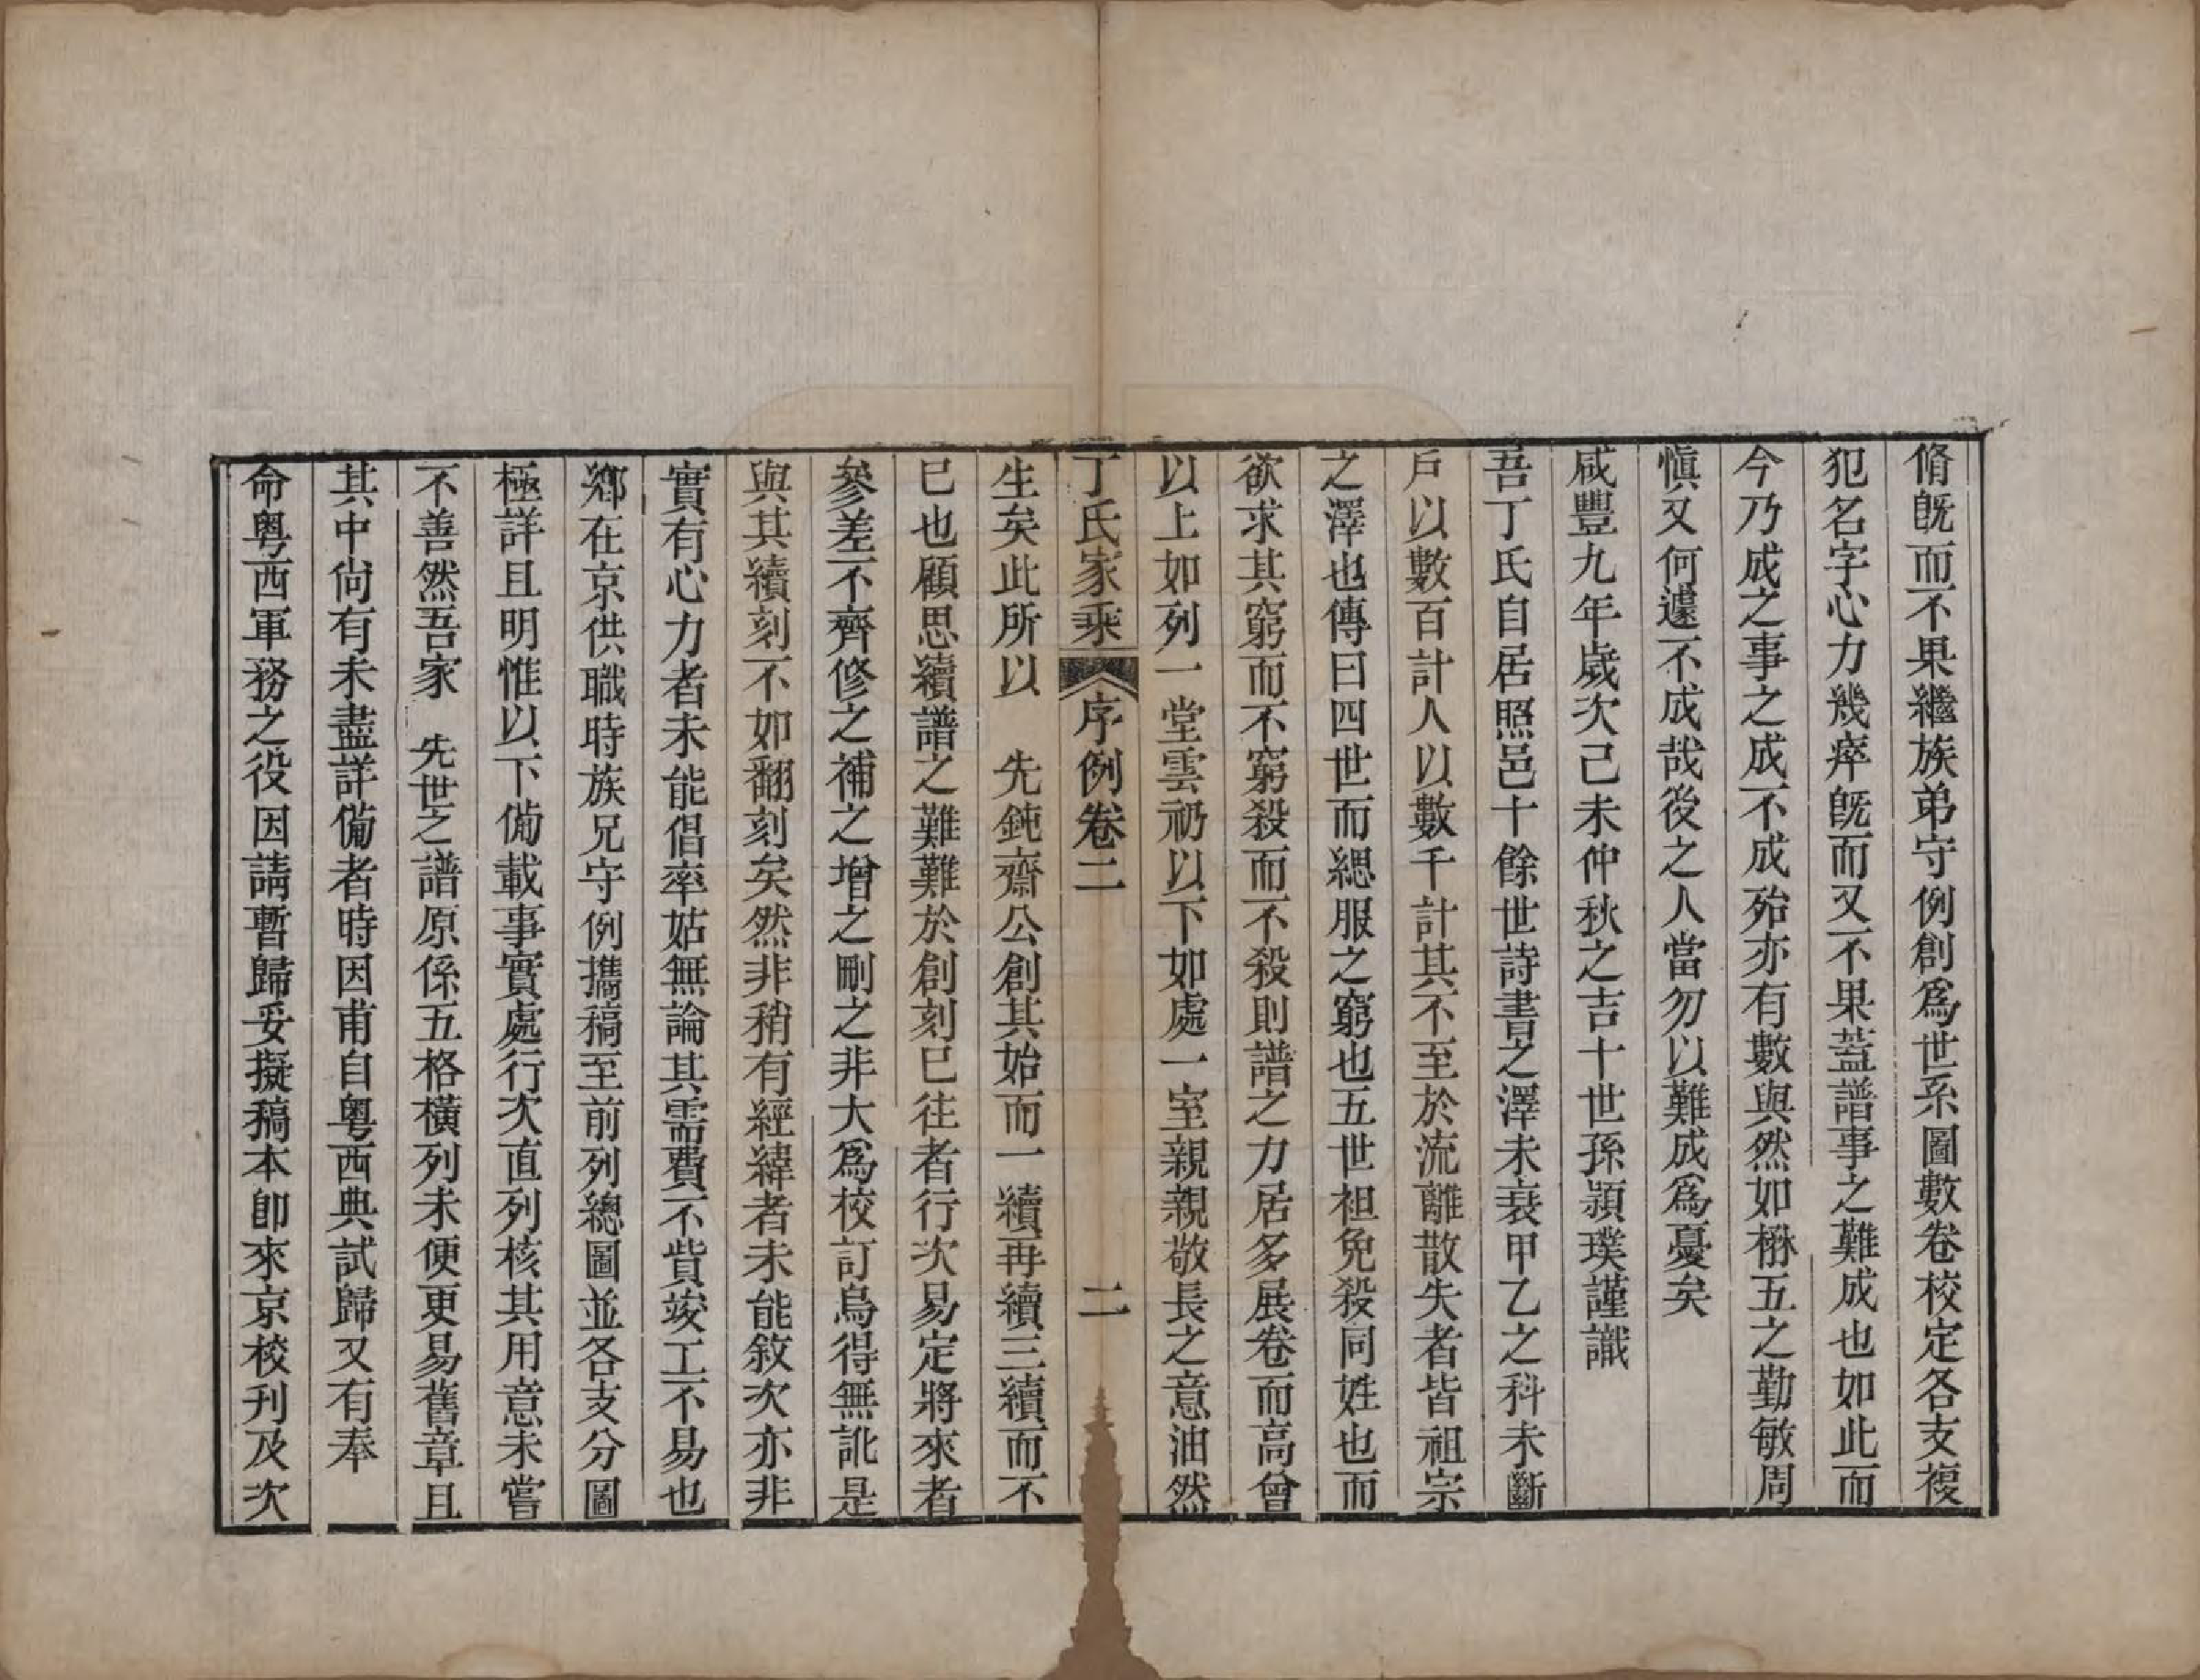 脩旣而不果繼族弟守例創爲世系圖數卷校定各支複
犯名字心力幾瘁旣而又不果蓋譜事之難成也如此而
今乃成之事之成不成殆亦有數與然如楙五之勤敏周
愼又何遽不成哉後之人當勿以難成爲憂矣
咸豐九年歲次己未仲秋之吉十世孫潁璞謹識
吾丁氏自居照邑十餘世詩書之澤未衰甲乙之科未斷
戶以數百計人以數千計其不至於流離散失者皆祖宗
之澤也傳曰四世而緦服之窮也五世袒免殺同姓也而
欲求其窮而不窮殺而不殺則譜之力居多展卷而高曾
以上如列一堂雲礽以下如處一室親親敬長之意油然
丁氏家乘 序例卷二 二
生矣此所以　先鈍齋公創其始而一續再續三續而不
已也顧思續譜之難難於創刻已往者行次易定將來者
參差不齊修之補之增之刪之非大爲校訂烏得無訛是
與其續刻不如翻刻矣然非稍有經緯者未能敘次亦非
實有心力者未能倡率姑無論其需費不貲竣工不易也
鄉在京供職時族兄守例攜稿至前列總圖並各支分圖
極詳且明惟以下備載事實處行次直列核其用意未嘗
不善然吾家　先世之譜原係五格橫列未便更易舊章且
其中尙有未盡詳備者時因甫自粵西典試歸又有奉
命粵西軍務之役因請暫歸妥擬稿本卽來京校刊及次